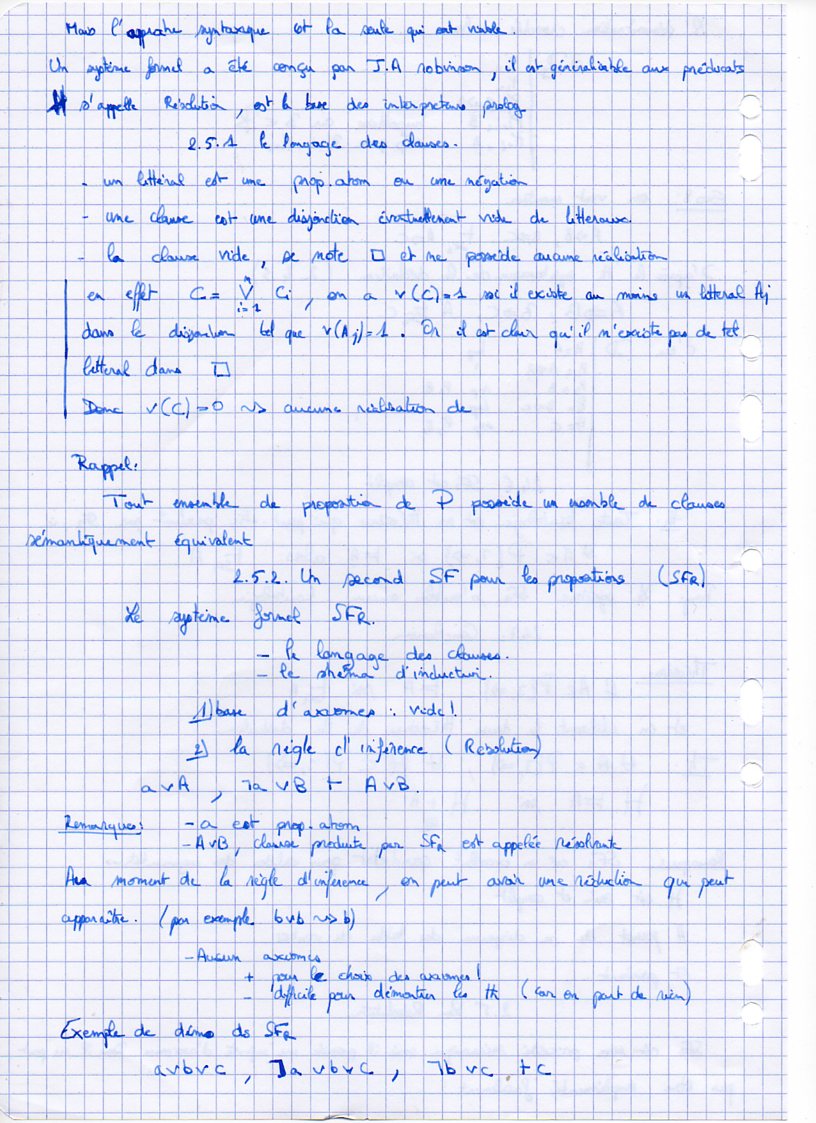 Mais l'approche syntaxique est la seule qui soit viable.
Un système formel a été conçu par J.A robinson, il est généralisable aux prédicats
Il s'appelle Résolution, est la base des interpreteurs prolog
2.5.1 le langage des clauses.
- un littéral est une prop. atom ou une négation
- une clause est une disjonction éventuellement vide de litteraux.
- la clause vide, se note □ et ne possède aucune réalisation
en effet C = V Ci, on a v(C)=1 ssi il existe au moins un litteral Aj
i=1
dans la disjonction tel que v(Aj)=1. Or il est clair qu'il n'existe pas de tel
litteral dans □
Donc v(C)=0 ~> aucune réalisation de
Rappel:
Tout ensemble de proposition de P possède un ensemble de clauses
sémantiquement équivalent
2.5.2. Un second SF pour les propositions (SFR)
Le système formel SFR.
- le langage des clauses.
- le shéma d'inductui.
1) base d'axiomes : vide!
2) la règle d'inférence (Resolution)
a ∨ A , ¬a ∨ B ⊢ A ∨ B.
Remarques: - a est prop. atom
- A∨B, clause produite par SFR est appelée résolvante
Au moment de la règle d'inférence, on peut avoir une réduction qui peut
apparaître. (par exemple b∨b ~> b)
- Aucun axiomes
+ pour le choix des axiomes!
- difficile pour démontrer les th (car on part de rien)
Exemple de démo ds SFR
a∨b∨c , ¬a∨b∨c , ¬b∨c ⊢ c